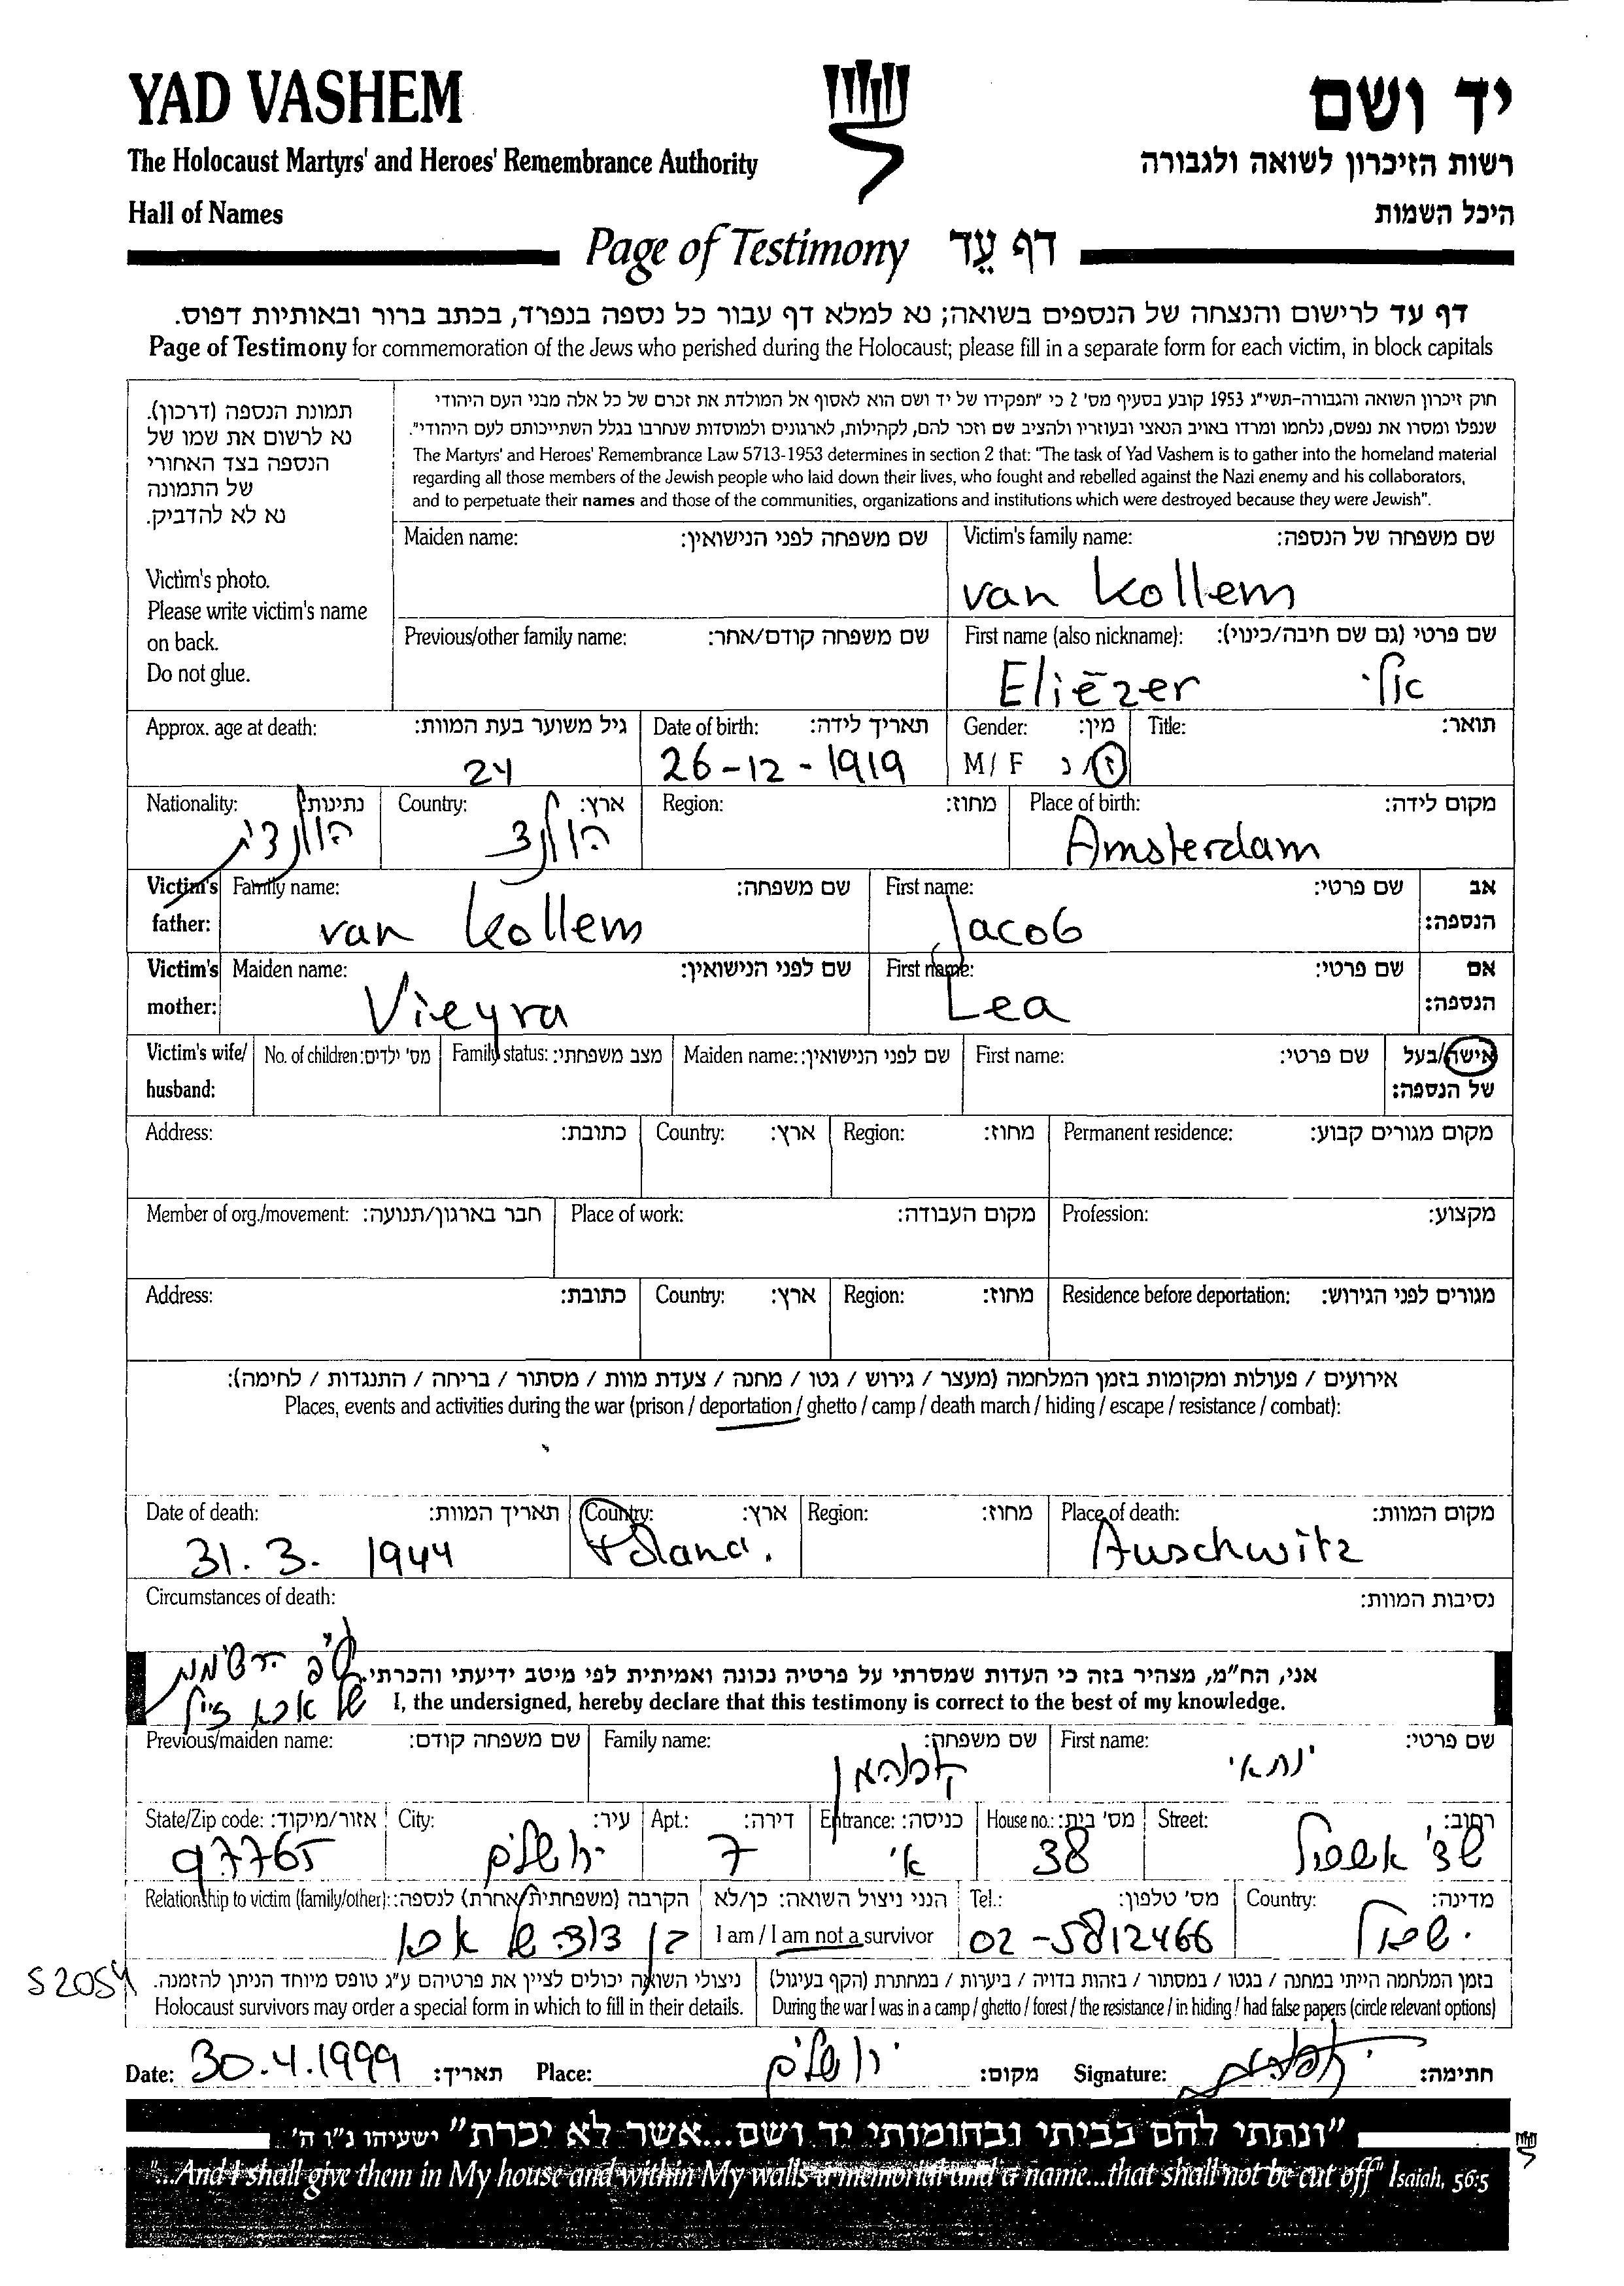 YAD VASHEM
The Holocaust Martyrs' and Heroes' Remembrance Authority
Hall of Names
יד ושם
רשות הזיכרון לשואה ולגבורה
היכל השמות
Page of Testimony דף עֵד
דף עד לרישום והנצחה של הנספים בשואה; נא למלא דף עבור כל נספה בנפרד, בכתב ברור ובאותיות דפוס.
Page of Testimony for commemoration of the Jews who perished during the Holocaust; please fill in a separate form for each victim, in block capitals
תמונת הנספה (דרכון).
נא לרשום את שמו של
הנספה בצד האחורי
של התמונה
נא לא להדביק.
Victim's photo.
Please write victim's name
on back.
Do not glue.
חוק זיכרון השואה והגבורה-תשי"ג 1953 קובע בסעיף מס' 2 כי "תפקידו של יד ושם הוא לאסוף אל המולדת את זכרם של כל אלה מבני העם היהודי
שנפלו ומסרו את נפשם, נלחמו ומרדו באויב הנאצי ובעוזריו ולהציב שם וזכר להם, לקהילות, לארגונים ולמוסדות שנחרבו בגלל השתייכותם לעם היהודי".
The Martyrs' and Heroes' Remembrance Law 5713-1953 determines in section 2 that: "The task of Yad Vashem is to gather into the homeland material
regarding all those members of the Jewish people who laid down their lives, who fought and rebelled against the Nazi enemy and his collaborators,
and to perpetuate their names and those of the communities, organizations and institutions which were destroyed because they were Jewish".
Maiden name: שם משפחה לפני הנישואין: Victim's family name: שם משפחה של הנספה:
van Kollem
Previous/other family name: שם משפחה קודם/אחר: First name (also nickname): שם פרטי (גם שם חיבה/כינוי):
Eliëzer אלי
Approx. age at death: גיל משוער בעת המוות: Date of birth: תאריך לידה: Gender: מין: Title: תואר:
24 26-12-1919 M/F ז/נ
Nationality: נתינות: Country: ארץ: Region: מחוז: Place of birth: מקום לידה:
הולנדית הולנד Amsterdam
Victim's father: Family name: שם משפחה: First name: שם פרטי: אב הנספה:
van Kollem Jacob
Victim's mother: Maiden name: שם לפני הנישואין: First name: שם פרטי: אם הנספה:
Vieyra Lea
Victim's wife/husband: No. of children: מס' ילדים: Family status: מצב משפחתי: Maiden name: שם לפני הנישואין: First name: שם פרטי: אישה/בעל של הנספה:
Address: כתובת: Country: ארץ: Region: מחוז: Permanent residence: מקום מגורים קבוע:
Member of org./movement: חבר בארגון/תנועה: Place of work: מקום העבודה: Profession: מקצוע:
Address: כתובת: Country: ארץ: Region: מחוז: Residence before deportation: מגורים לפני הגירוש:
אירועים / פעולות ומקומות בזמן המלחמה (מעצר / גירוש / גטו / מחנה / צעדת מוות / מסתור / בריחה / התנגדות / לחימה):
Places, events and activities during the war (prison / deportation / ghetto / camp / death march / hiding / escape / resistance / combat):
Date of death: תאריך המוות: Country: ארץ: Region: מחוז: Place of death: מקום המוות:
31.3. 1944 Poland. Auschwitz
Circumstances of death: נסיבות המוות:
עפ"י רשימות
של אבא ז"ל
אני, הח"מ, מצהיר בזה כי העדות שמסרתי על פרטיה נכונה ואמיתית לפי מיטב ידיעתי והכרתי.
I, the undersigned, hereby declare that this testimony is correct to the best of my knowledge.
Previous/maiden name: שם משפחה קודם: Family name: שם משפחה: First name: שם פרטי:
State/Zip code: אזור/מיקוד: City: עיר: Apt.: דירה: Entrance: כניסה: House no.: מס' בית: Street: רחוב:
97765 ירושלים 7 א' 38 שד' אשכול
Relationship to victim (family/other): הקרבה (משפחתית/אחרת) לנספה: הנני ניצול השואה: כן/לא Tel.: מס' טלפון: Country: מדינה:
בן דוד של אבא I am / I am not a survivor 02-5812466 ישראל
S2054
ניצולי השואה יכולים לציין את פרטיהם ע"ג טופס מיוחד הניתן להזמנה.
Holocaust survivors may order a special form in which to fill in their details.
בזמן המלחמה הייתי במחנה / בגטו / במסתור / בזהות בדויה / ביערות / במחתרת (הקף בעיגול)
During the war I was in a camp / ghetto / forest / the resistance / in hiding / had false papers (circle relevant options)
Date: 30.4.1999 תאריך: Place: ירושלים מקום: Signature: חתימה:
"ונתתי להם בביתי ובחומותי יד ושם...אשר לא יכרת" ישעיהו נ"ו ה'
"...And I shall give them in My house and within My walls a memorial and a name...that shall not be cut off" Isaiah, 56:5